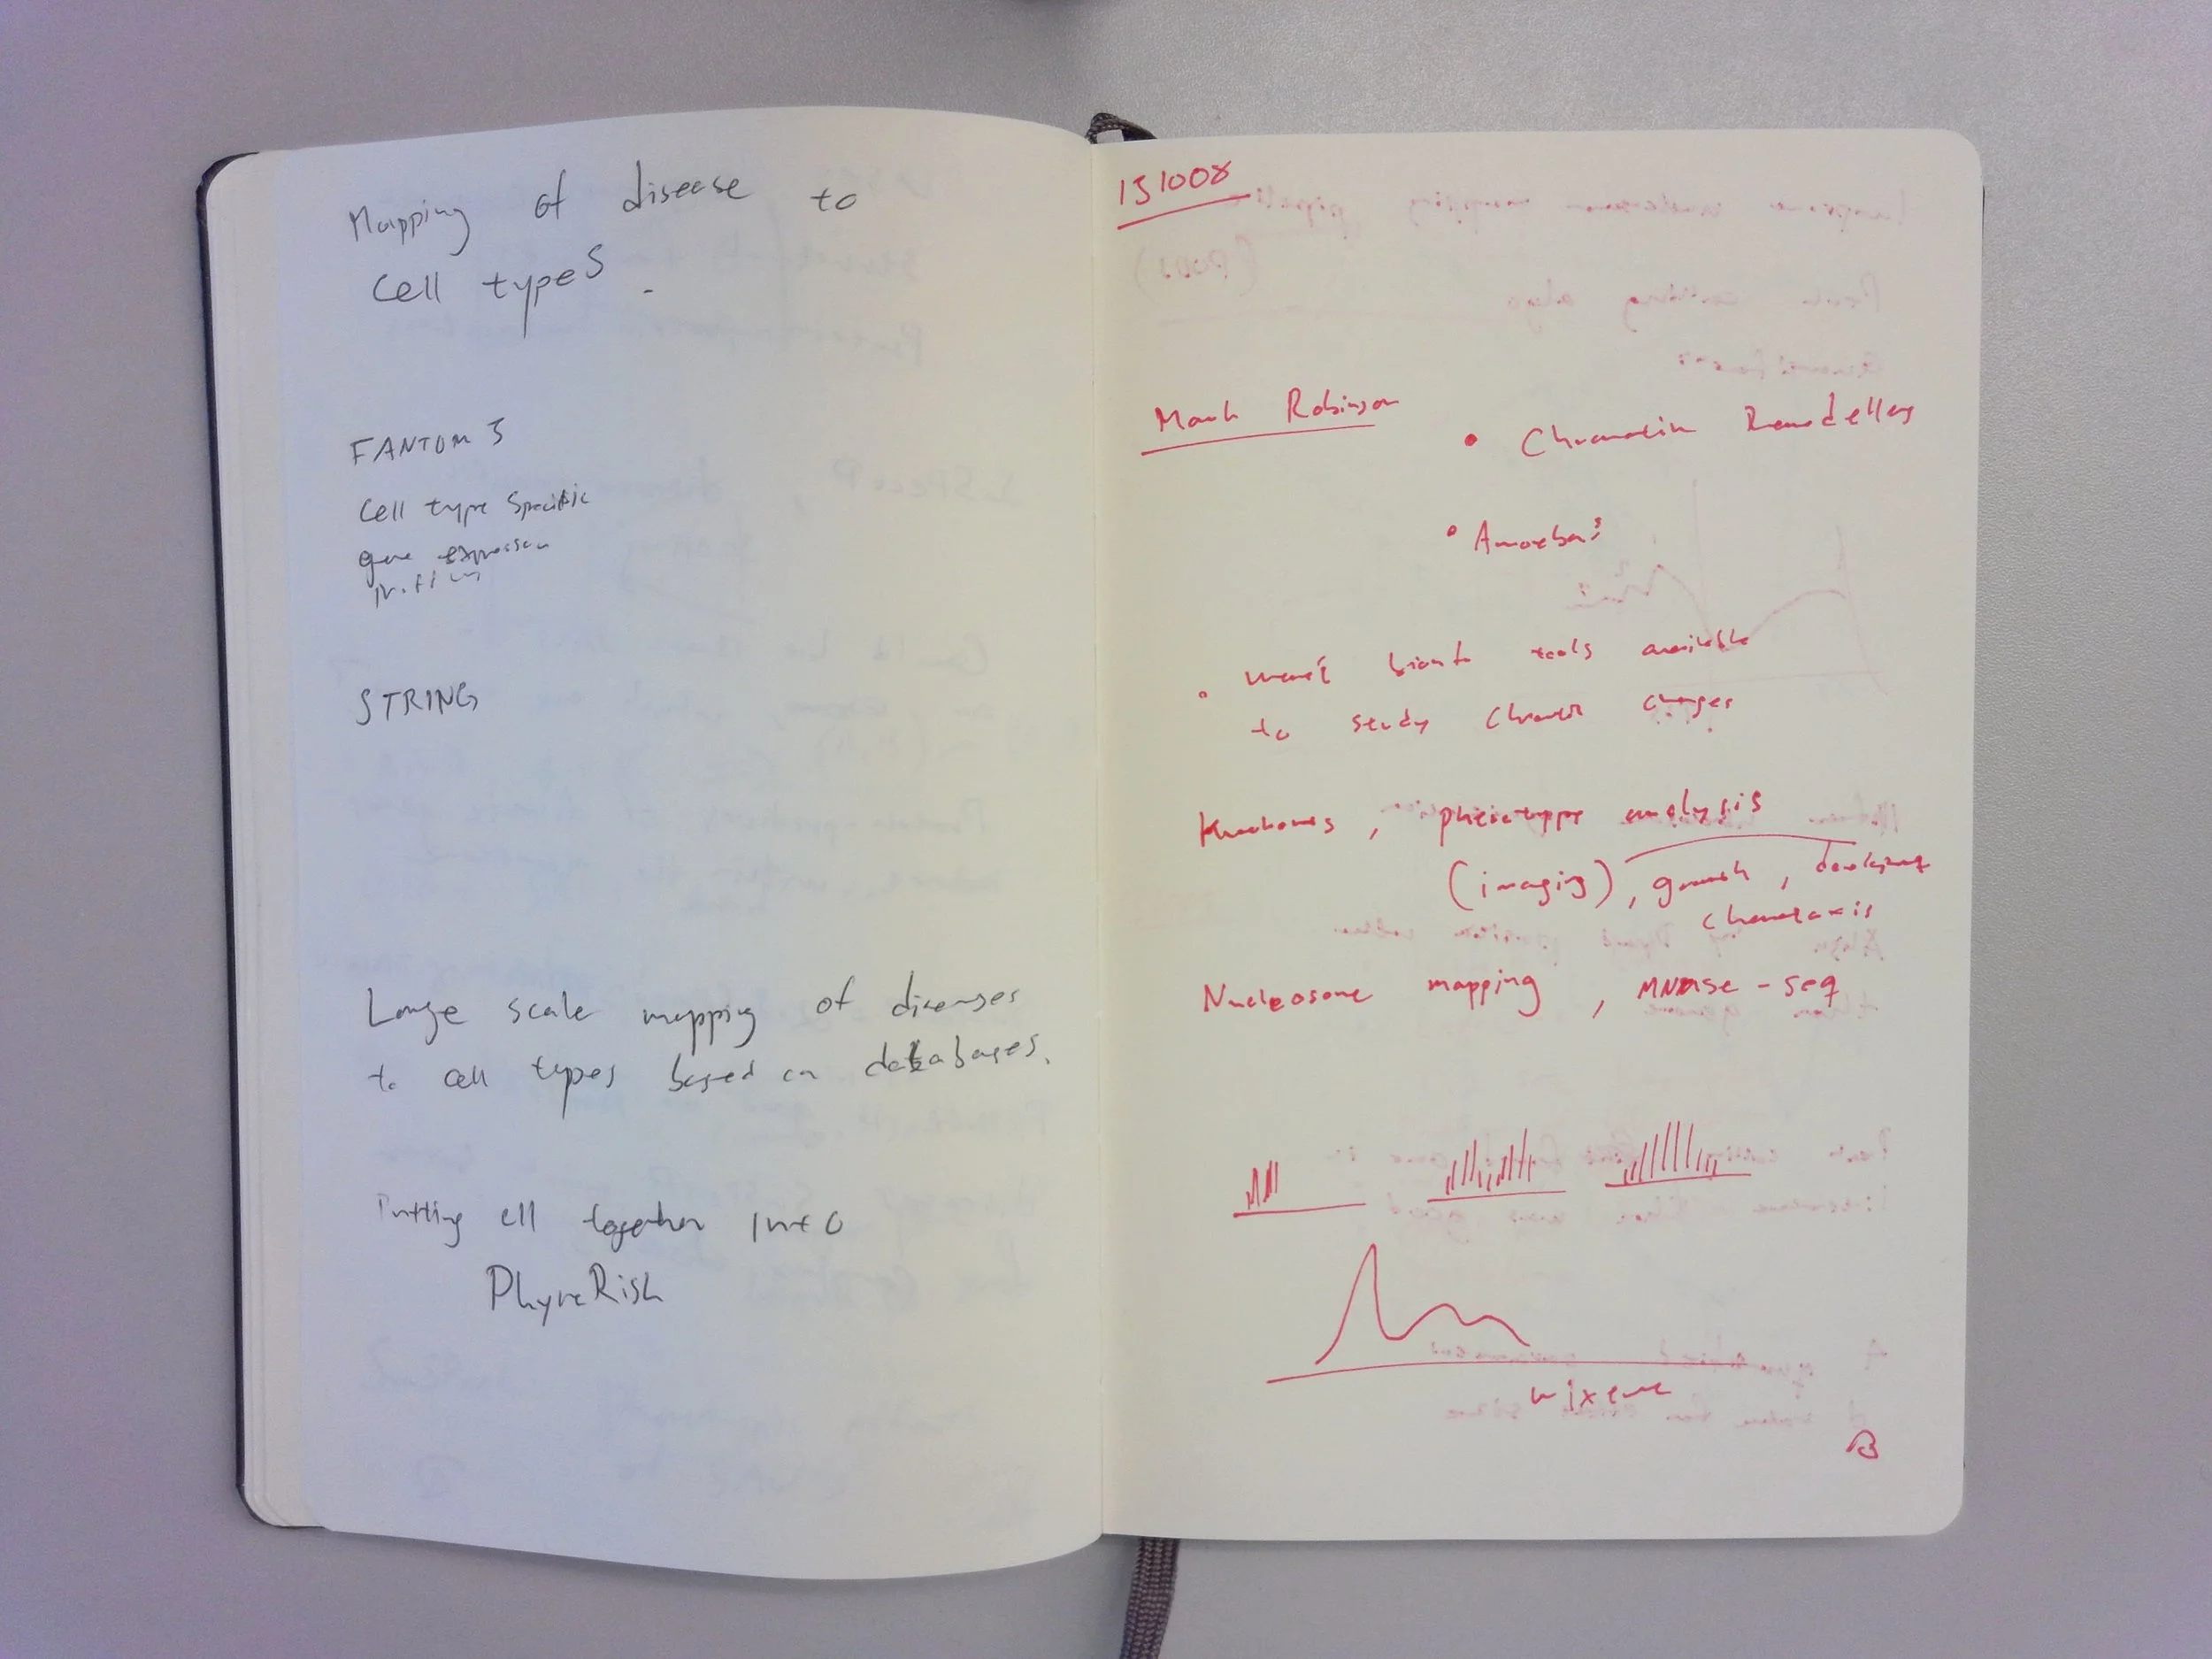 Mapping of disease to
cell types.
FANTOM 5
Cell type specific
gene expression
STRING
Large scale mapping of diseases
to cell types based on databases.
Putting all together into
PhyreRisk
151008
Mark Robinson
• Chromatin Remodellers
• Amoebas
• weren't tools available
to study changes
Knockouts, phenotype analysis
(imaging), growth, developing
chemotaxis
Nucleosome mapping, MNase-seq
mixture